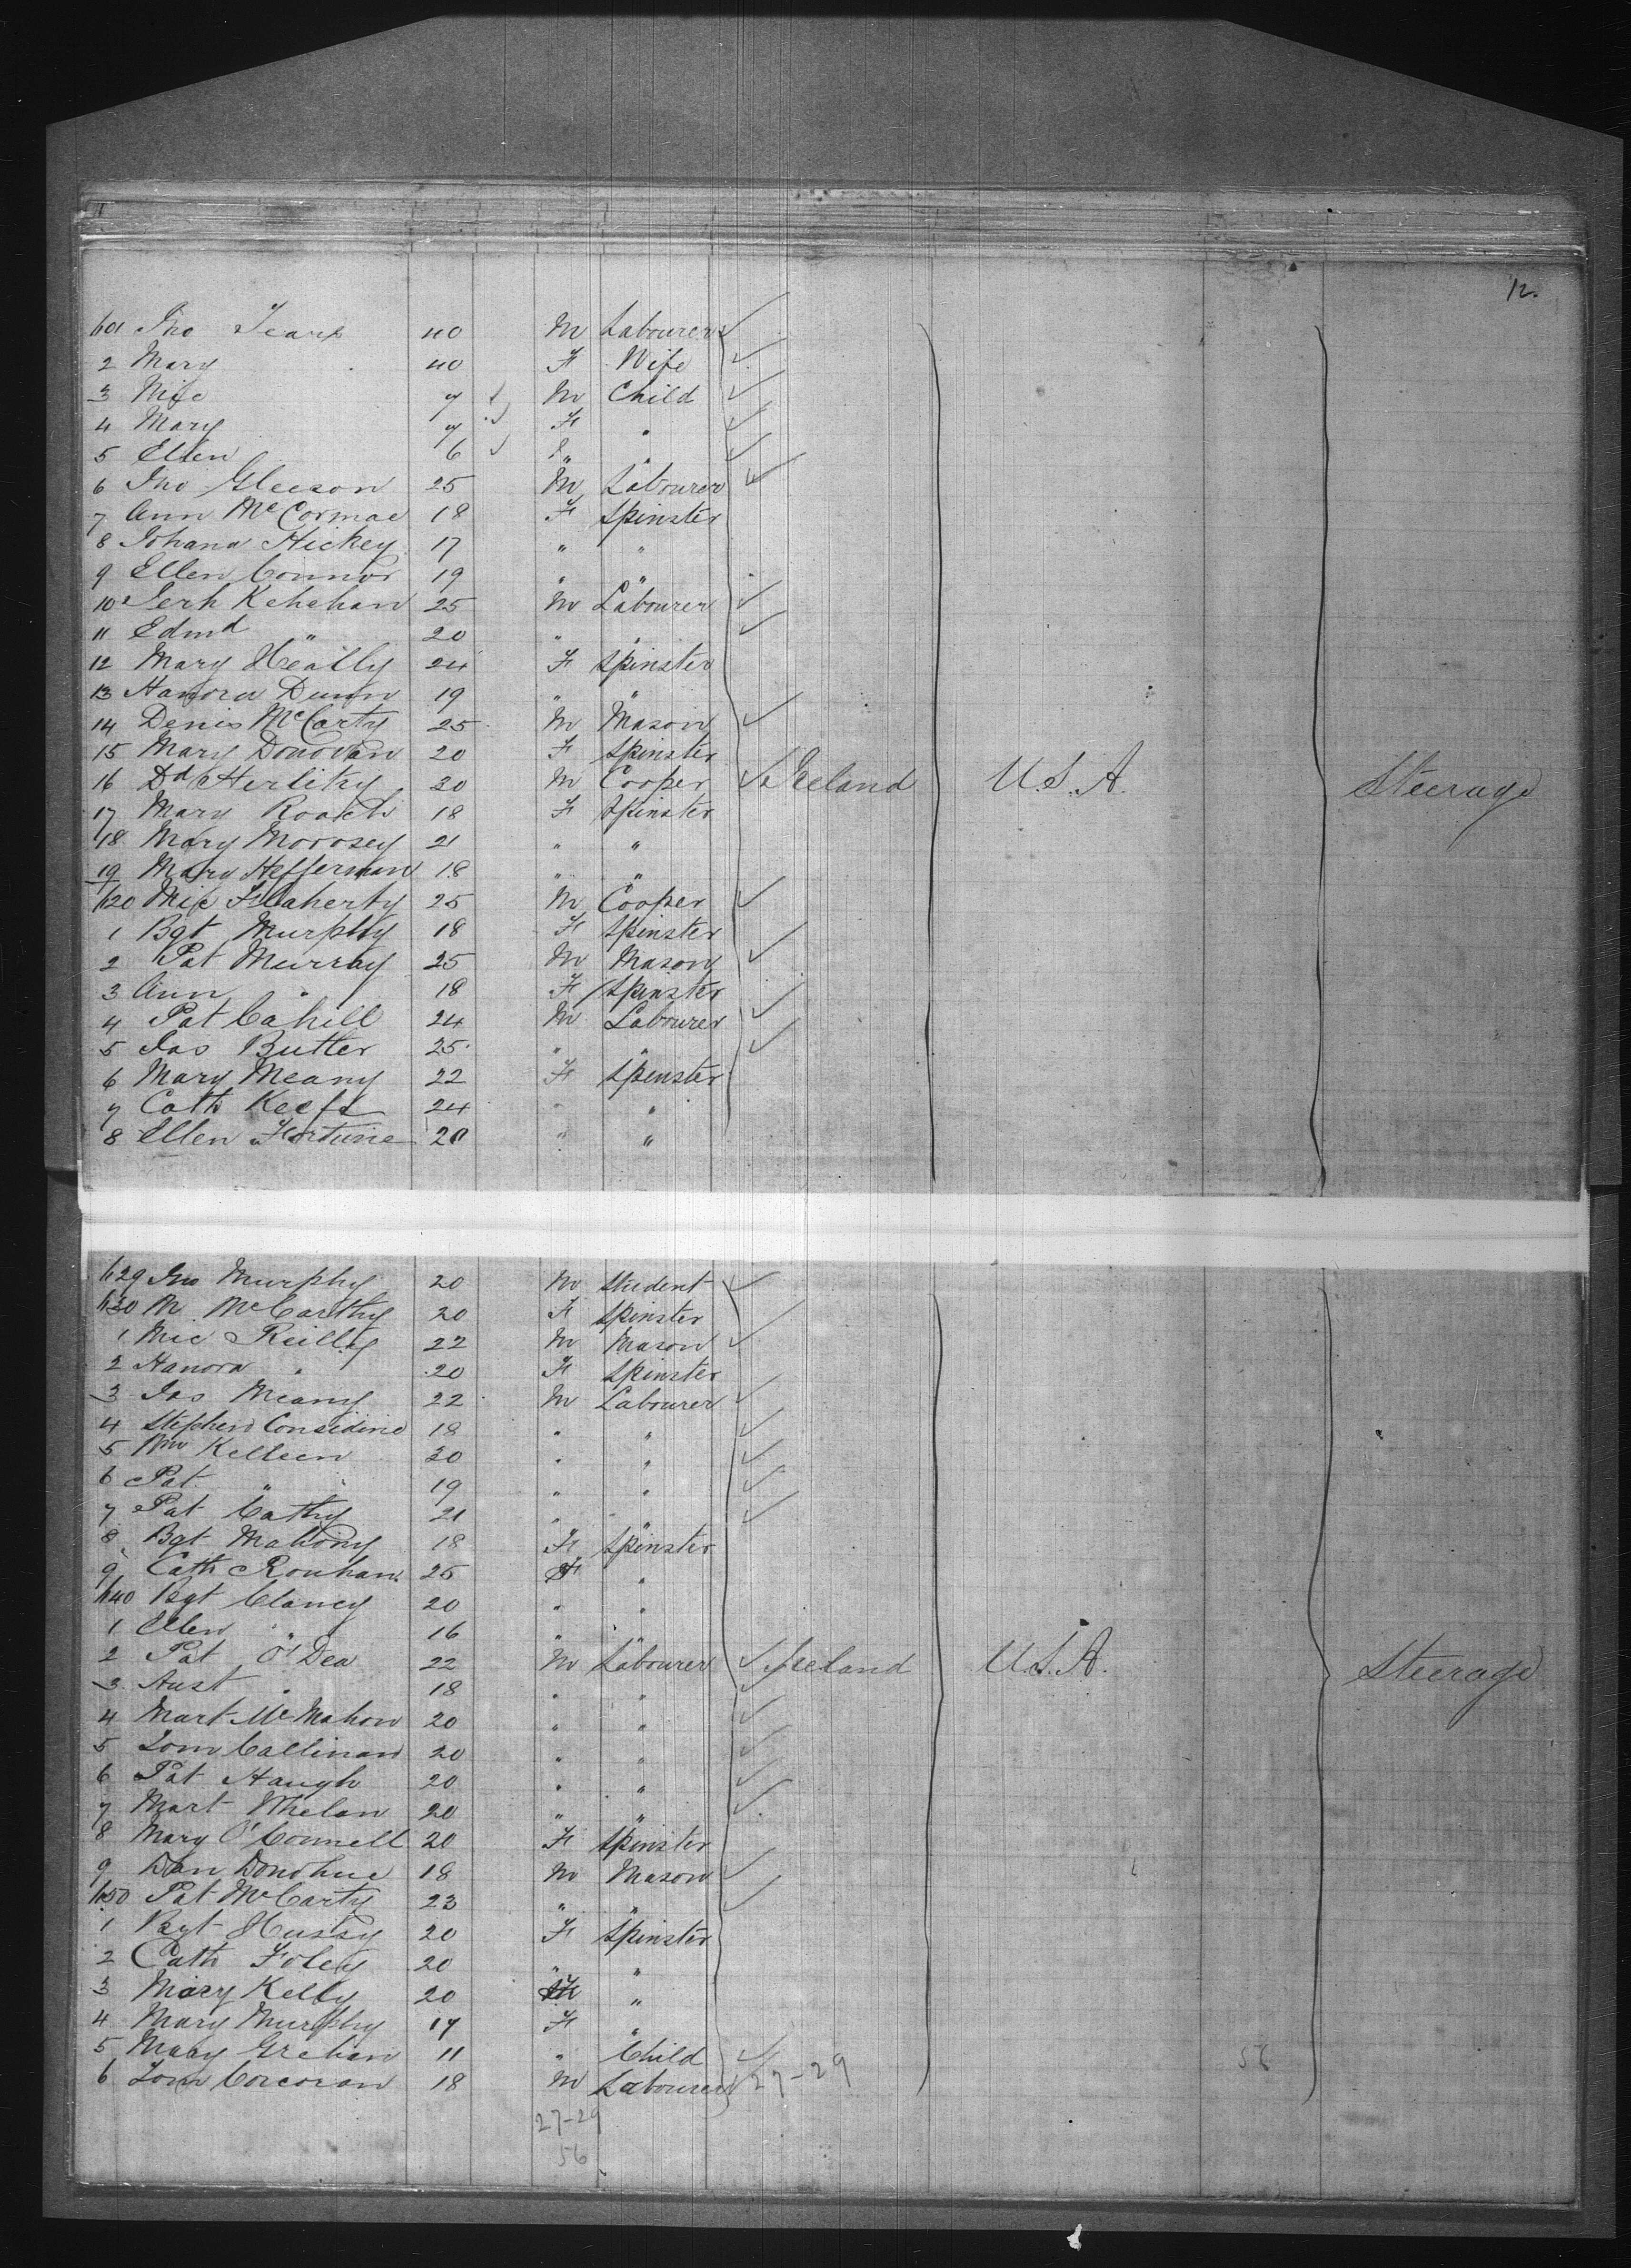 12.
1101 Jno 40 M Labourer
2 Mary 40 F Wife
3 Mic 7 M Child
4 Mary 7 F "
5 Ellen 6 " "
6 Jno Gleeson 25 M Labourer
7 Ann McCormac 18 F Spinster
8 Johana Hickey 17 " "
9 Ellen Connor 19 " "
10 Jerh Kehehan 25 M Labourer
11 Edmd " 20 " "
12 Mary Heally 24 F Spinster
13 Hanora Dunn 19 " "
14 Denis McCarty 25 M Mason
15 Mary Donovan 20 F Spinster
16 Dd Herlihy 20 M Cooper Ireland U.S.A. Steerage
17 Mary Roach 18 F Spinster
18 Mary Morosey 21 " "
19 Mary Heffernan 18 " "
1120 Mic Flaherty 25 M Cooper
1 Bgt Murphy 18 F Spinster
2 Pat Murray 25 M Mason
3 Ann " 18 F Spinster
4 Pat Cahill 24 M Labourer
5 Jas Butler 25 " "
6 Mary Meany 22 F Spinster
7 Cath Keefe 24 " "
8 Ellen Fortune 20 " "
1129 Jno Murphy 20 M Student
1130 M McCarthy 20 F Spinster
1 Mic Reilly 22 M Mason
2 Hanora " 20 F Spinster
3 Jas Meany 22 M Labourer
4 Stephen Considine 18 " "
5 Wm Killeen 20 " "
6 Pat " 19 " "
7 Pat Cathy 21 " "
8 Bgt Mahony 18 F Spinster
9 Cath Rouhan 25 F "
1140 Bgt Clancy 20 " "
1 Ellen " 16 " "
2 Pat O'Dea 22 M Labourer Ireland U.S.A. Steerage
3 Aust " 18 " "
4 Mart McMahon 20 " "
5 Tom Callinan 20 " "
6 Pat Haugh 20 " "
7 Mart Whelan 20 " "
8 Mary O'Connell 20 F Spinster
9 Dan Donohue 18 M Mason
1150 Pat McCarty 23 " "
1 Bgt Hussy 20 F Spinster
2 Cath Foley 20 " "
3 Mary Kelly 20 F "
4 Mary Murphy 17 F "
5 Mary Grehan 11 " Child 56
6 Tom Corcoran 18 M Labourer 27-29
27-29
56